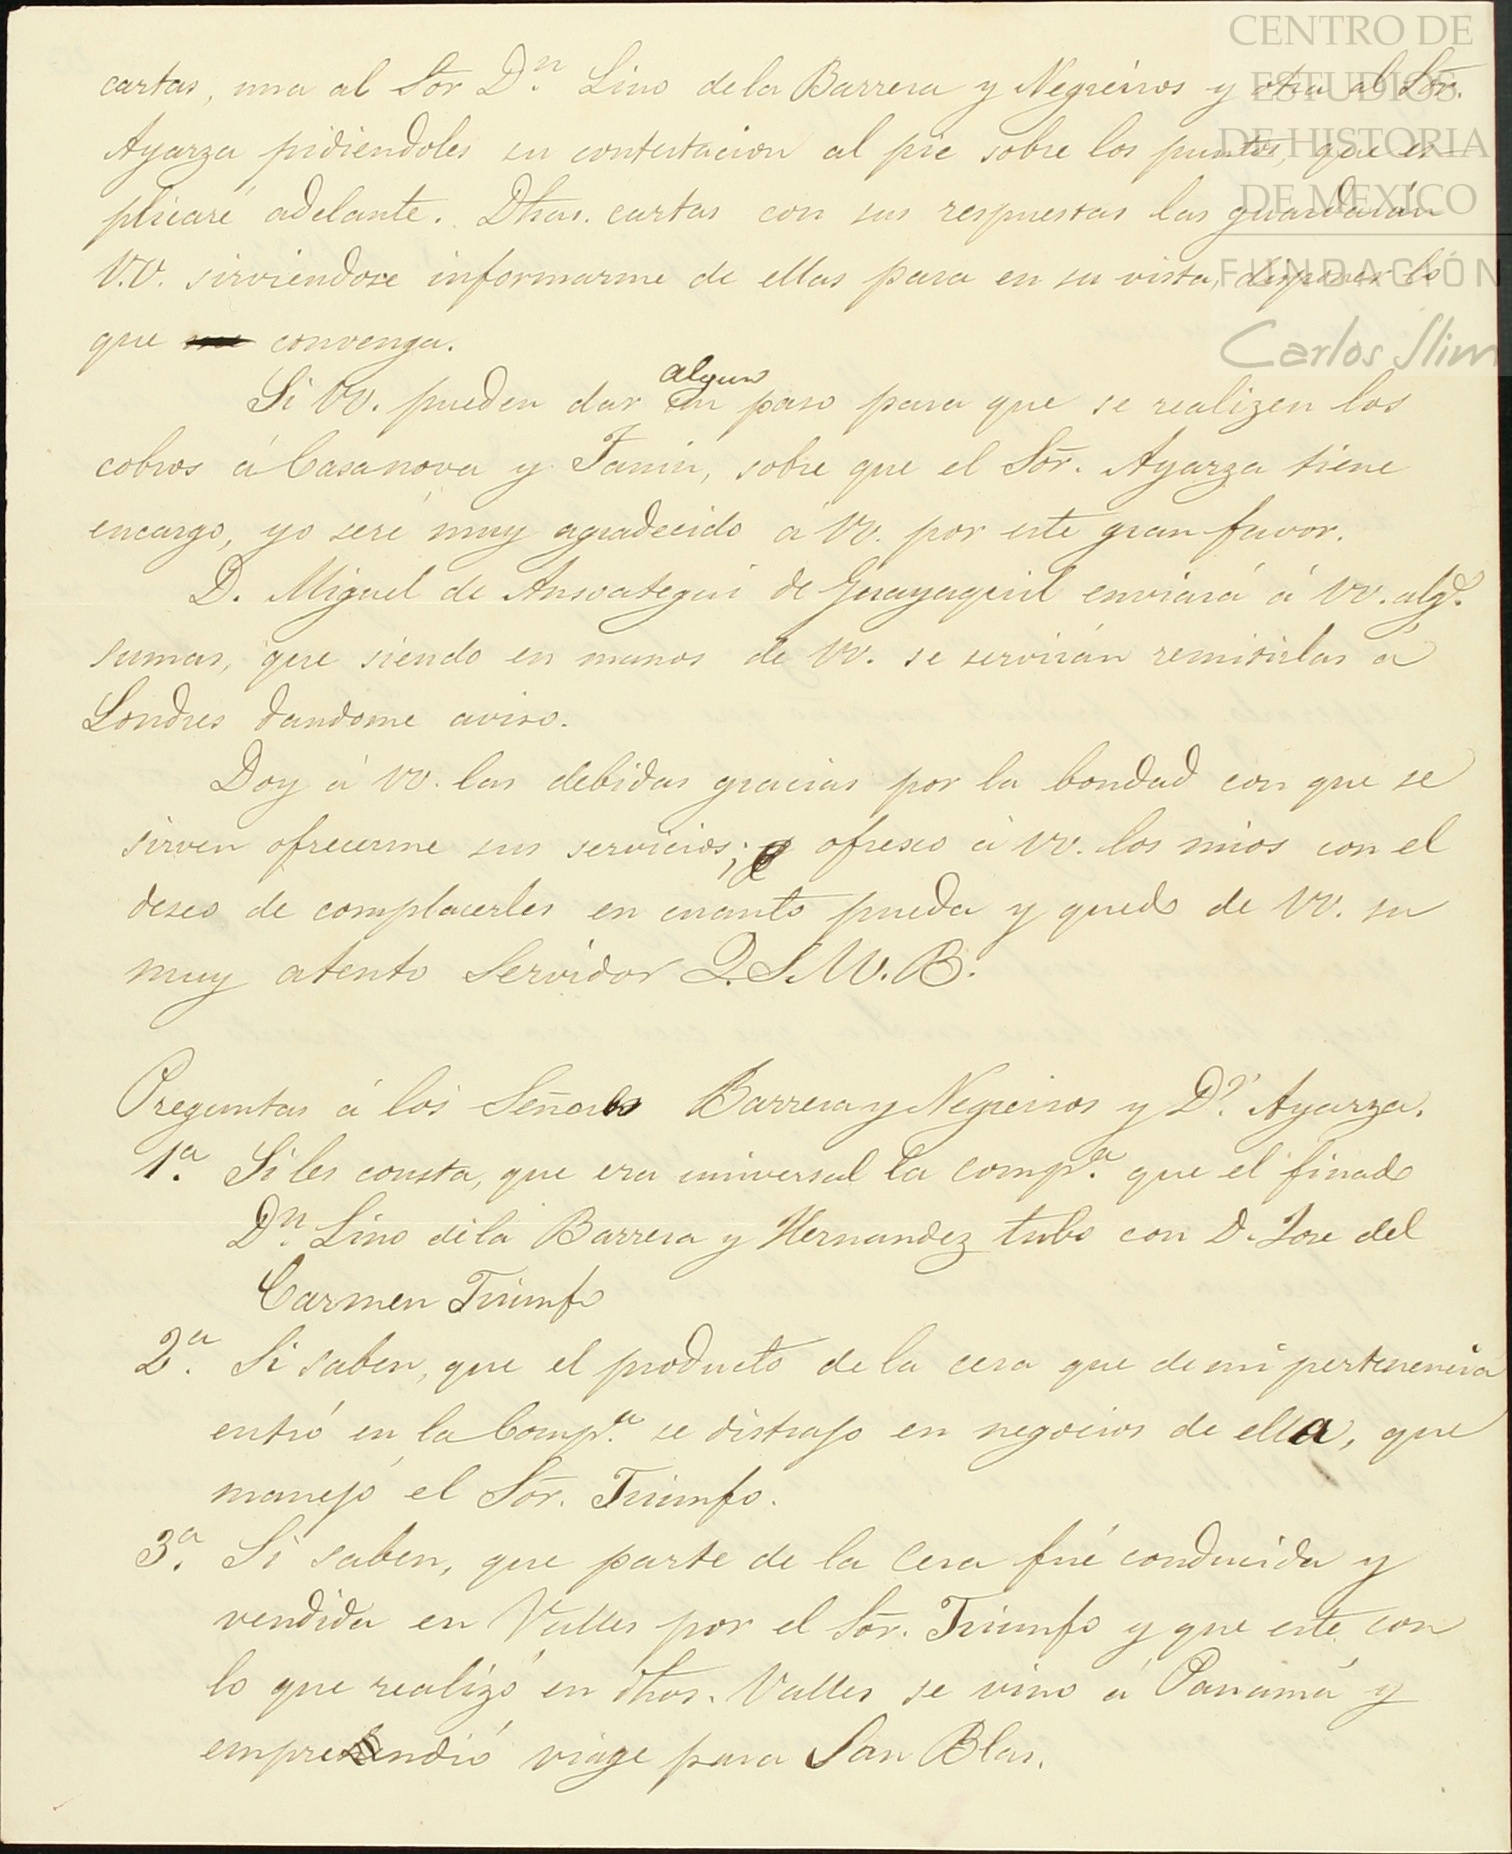 cartas, una al Sor Dn. Lino de la Barrera y Negreiros y otra al Sor.
Ayarza pidiendoles su contestacion al pie sobre los puntos, que es-
plicaré adelante. Dhas. cartas con sus respuestas las guardarán
V.V. sirviendose informarme de ellas para en su vista, disponer lo
que convenga.
Si VV. pueden dar un algun paso para que se realizen los
cobros á Casanova y Fanin, sobre que el Sor. Ayarza tiene
encargo, yo seré muy agradecido á VV. por este gran favor.
D. Miguel de Ansoategui de Guayaquil enviará á VV. algs.
sumas, que siendo en manos de VV. se servirán remitirlas á
Londres dandome aviso.
Doy á VV. las debidas gracias por la bondad con que se
sirven ofrecerme sus servicios; y ofresco á VV. los mios con el
deseo de complacerles en cuanto pueda y quedo de VV. su
muy atento Servidor Q.S.M.B.
Preguntas á los Señores Barrera y Negreiros y Dn. Ayarza.
1a. Si les consta, que era universal la Compa. que el finado
Dn. Lino de la Barrera y Hernandez tubo con D. Jose del
Carmen Triunfo
2a. Si saben, que el producto de la cera que de mi pertenencia
entró en la Compa. se distrajo en negocios de ella, que
manejó el Sor. Triunfo.
3a. Si saben, que parte de la Cera fué conducida y
vendida en Valles por el Sor. Triunfo y que este con
lo que realizó en dhos. Valles se vino á Panamá y
emprendió viage para San Blas.
CENTRO DE
ESTUDIOS
DE HISTORIA
DE MEXICO
FUNDACIÓN
Carlos Slim